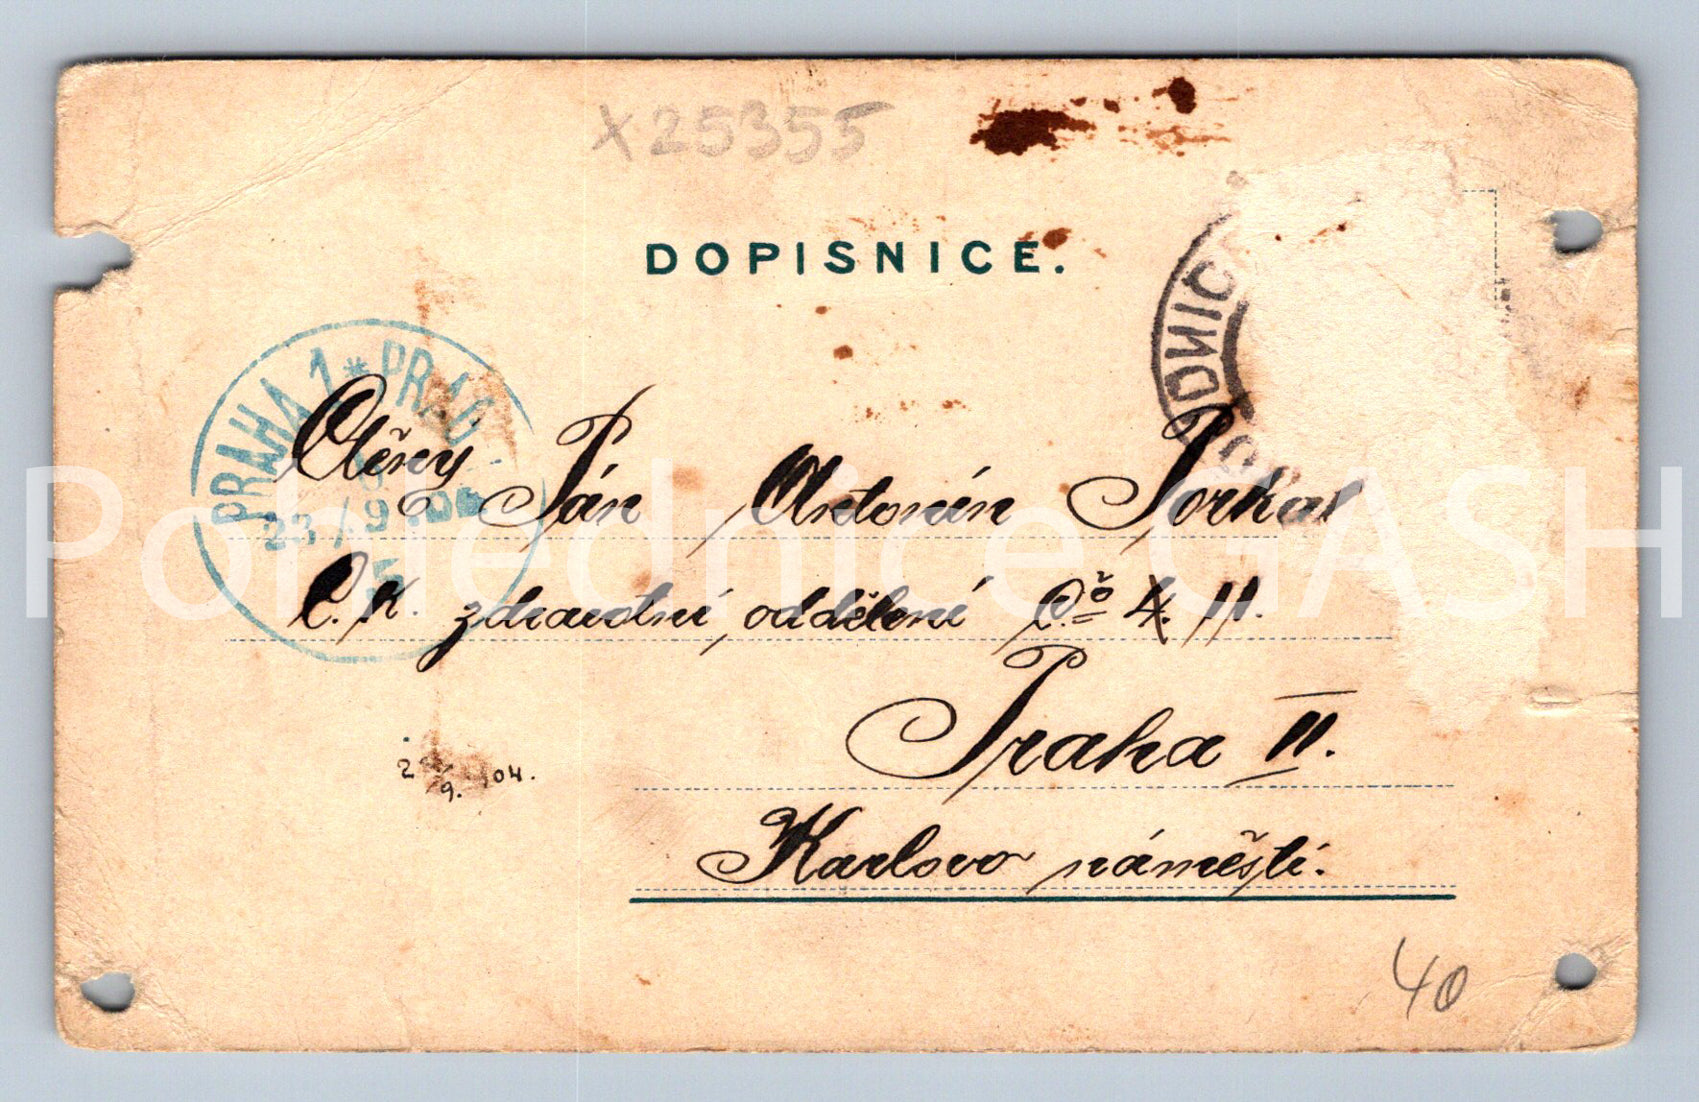 X25355
DOPISNICE.
PRAHA 1 * PRAG
23/9
Ctěný Pán Antonín Porkat
C.K. zdravotní oddělení Čo 4. II.
Praha II.
Karlovo náměstí.
9. 904.
40
Pohlednice GASH